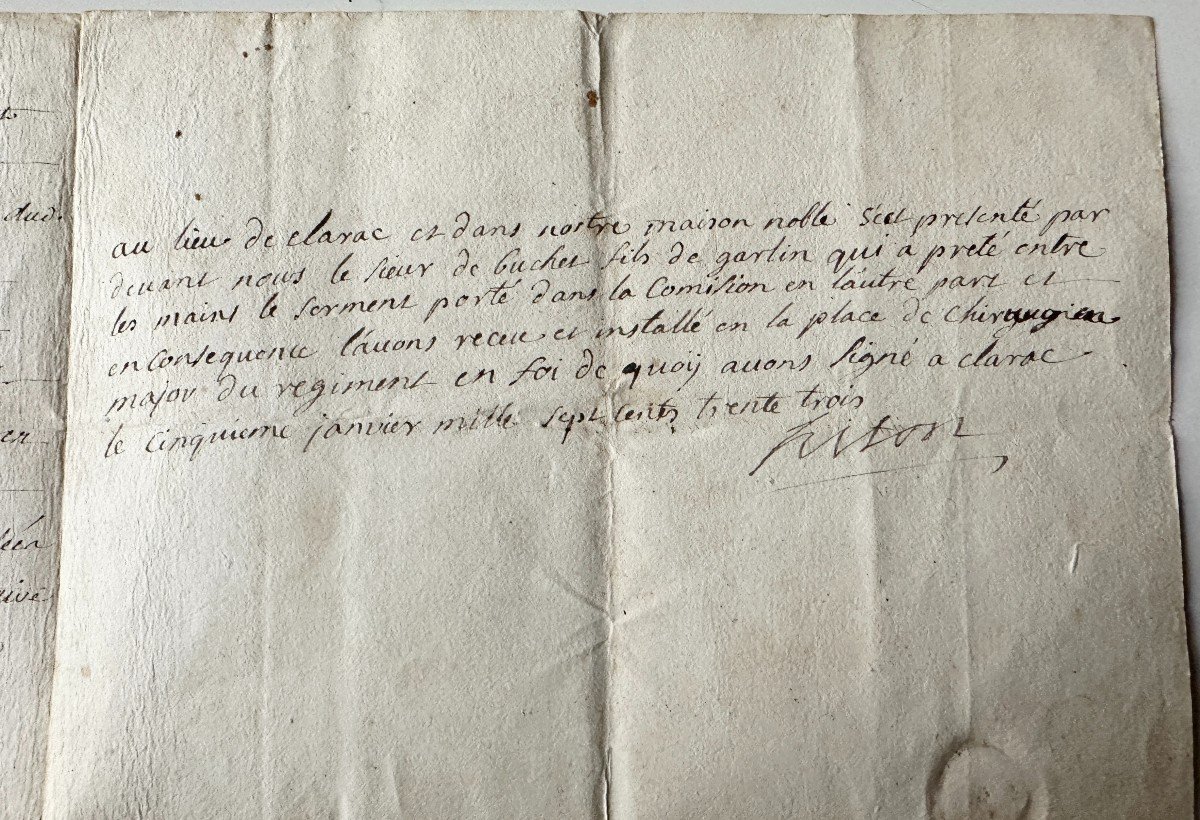 dud.
en
au lieu de clarac et dans nostre maison noble s'est presenté par
devant nous le sieur de buchet fils de garlin qui a preté entre
les mains le serment porté dans la Comision en lautre part et
en consequence lavons receu et installé en la place de chirurgien
major du regiment en foi de quoij avons signé a clarac
le cinquieme janvier mille sept cents trente trois